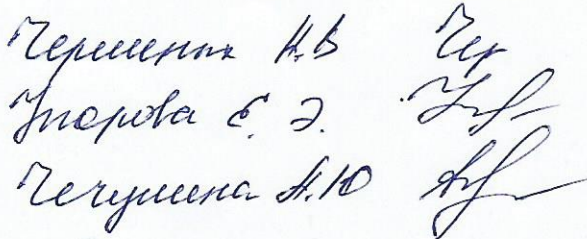 Черменин Н.В Чер
Упорова Е. Э.
Чечулина А.Ю